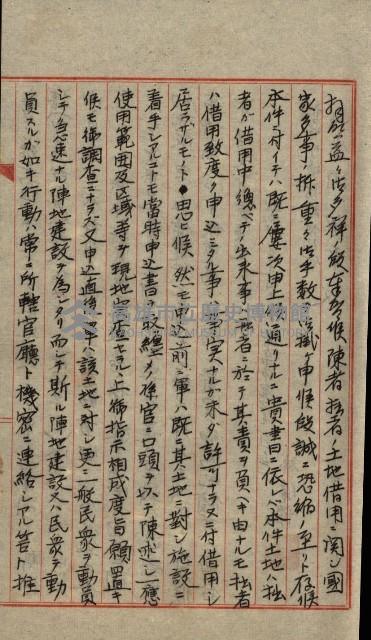 拝啓益々御多祥ノ段奉賀候陳者拙者ノ土地借用ニ関シ国
家多事ノ折重々御手数相掛ケ申候段誠ニ恐縮ノ至リト存候
本件ニ付イテハ既ニ屡次申上ノ通リナルニ貴書ニ依レバ本件土地ハ拙
者ガ借用中總ベテノ出来事ハ拙者ニ於テ其ノ責ヲ負ヘキ由ナルモ拙者
ハ借用致度ク申込ミタル事ハ事実ナルガ未ダ許可ナラヌニ付借用シ
居ラザルモノト思ヒ候然モ申込前ニ軍ハ既ニ其ノ土地ニ對シ施設ニ
着手シアルニトモ當時申込書ヲ取纏メノ係官ニ口頭ヲ以テ陳述シ一應
使用範囲及区域等ヲ現地調査セラル上御指示相成度旨願置キ
候モ御調査ニナラズ又申込直後軍ハ該土地ニ対シ更ニ一般民衆ヲ動員
シテ急速ナル陣地建設ヲ為シタリ而シテ斯ル陣地建設又ハ民衆ヲ動
員スルガ如キ行動ハ常ニ所轄官廳ト機密ニ連絡シアル筈ト推
高雄市立歷史博物館